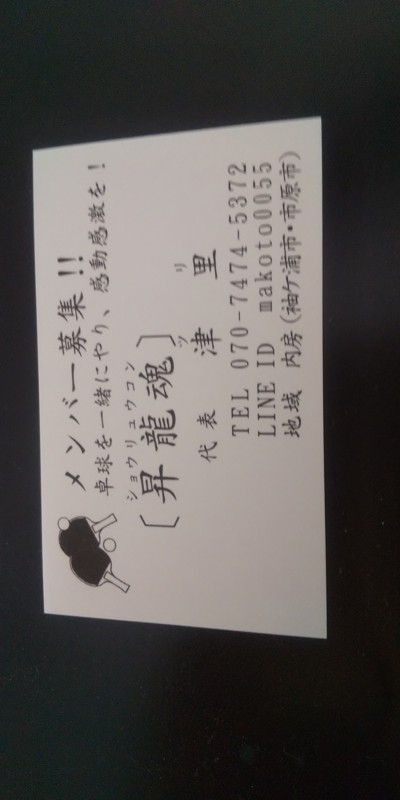 メンバー募集!!
卓球を一緒にやり、感動感激を!
ショウリュウコン
〔昇龍魂〕
ツ リ
代表 津 里
TEL 070-7474-5372
LINE ID makoto0055
地域 内房(袖ケ浦市・市原市)